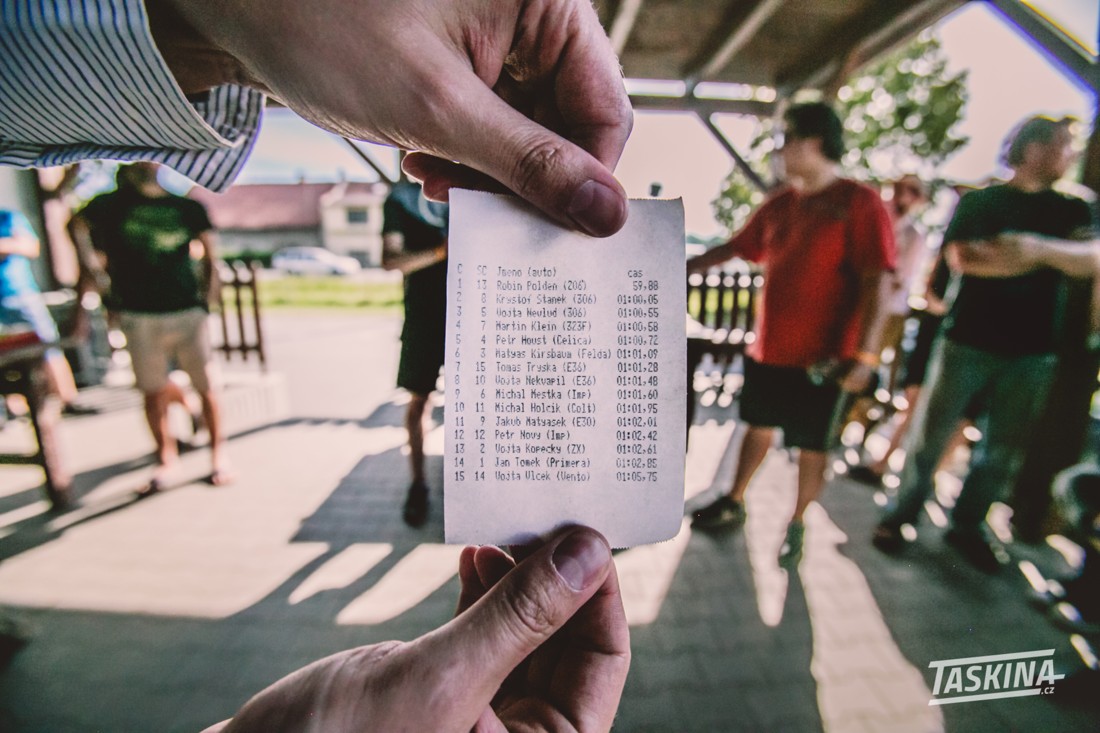 C SC Jmeno (auto) cas
1 13 Robin Polden (206) 59,88
2 8 Krystof Stanek (306) 01:00,05
3 5 Vojta Neulud (306) 01:00,55
4 7 Martin Klein (323F) 01:00,58
5 4 Petr Houst (Celica) 01:00,72
6 3 Matyas Kirsbaum (Felda) 01:01,09
7 15 Tomas Tryska (E36) 01:01,28
8 10 Vojta Nekvapil (E36) 01:01,48
9 6 Michal Mestka (Imp) 01:01,60
10 11 Michal Holcik (Colt) 01:01,95
11 9 Jakub Matyasek (E30) 01:02,01
12 12 Petr Novy (Imp) 01:02,42
13 2 Vojta Kopecky (ZX) 01:02,61
14 1 Jan Tomek (Primera) 01:02,85
15 14 Vojta Vlcek (Vento) 01:05,75
TASKINA.CZ